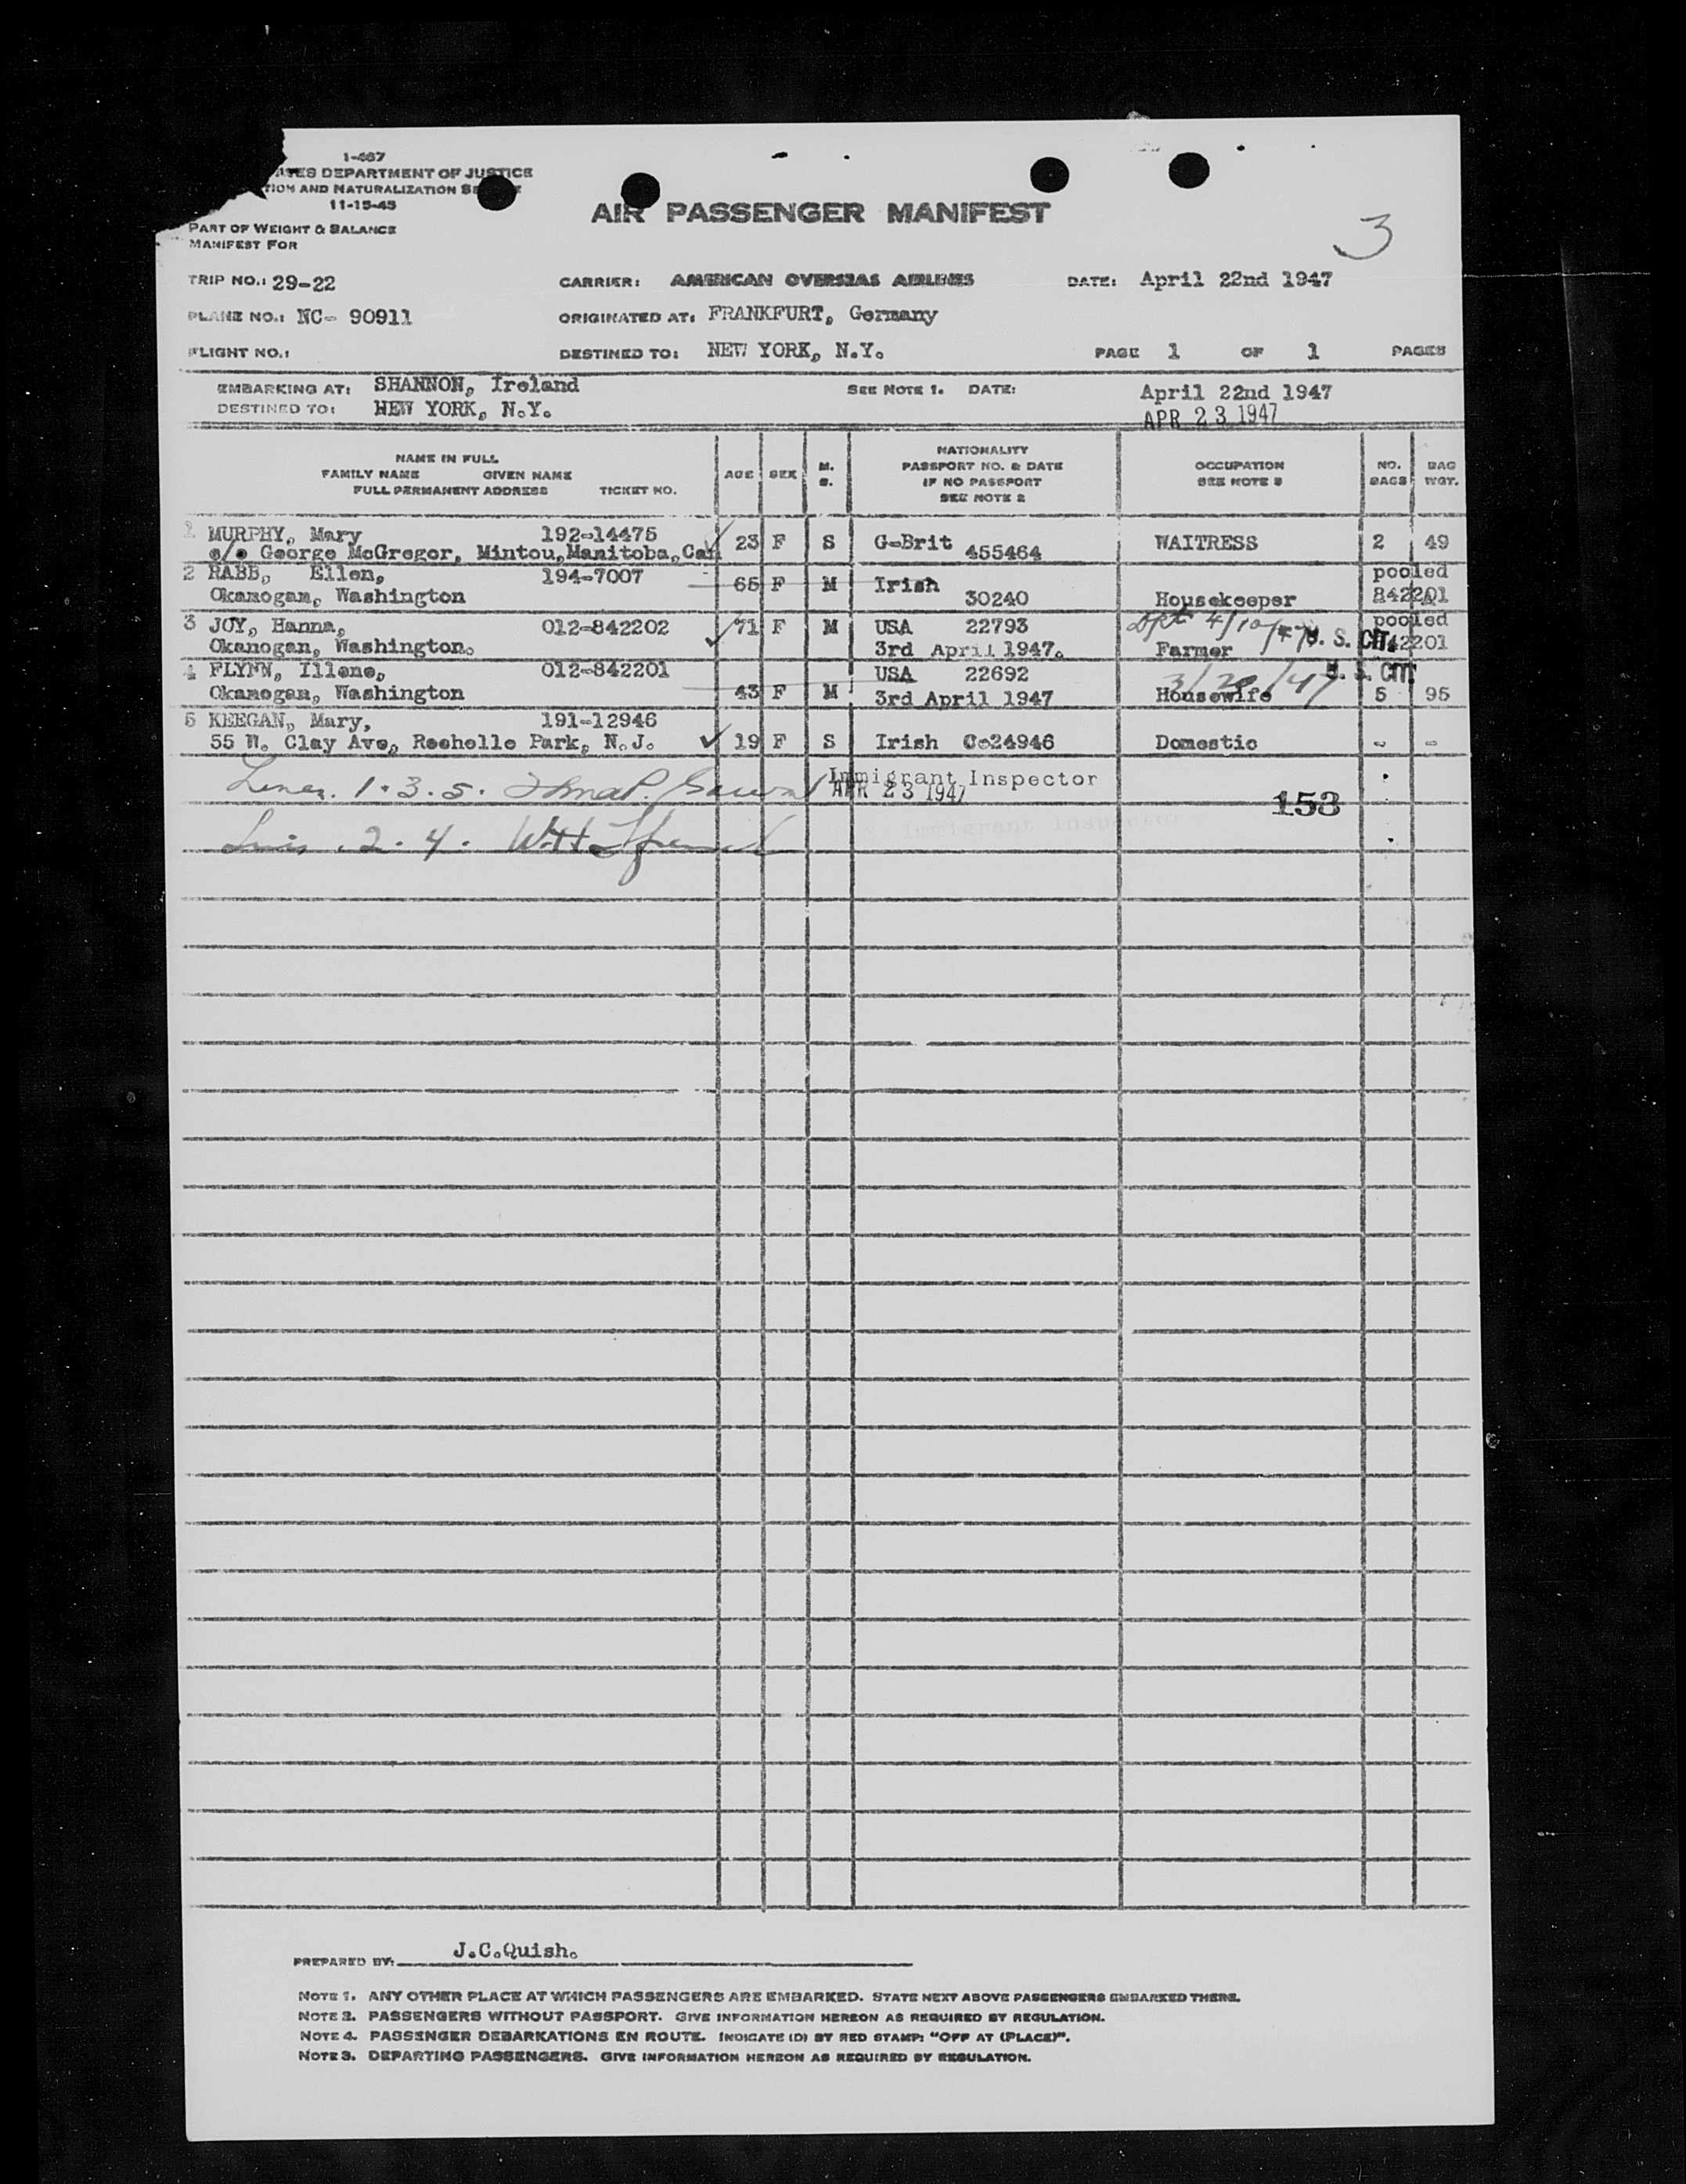 1-467
DEPARTMENT OF JUSTICE
AND NATURALIZATION
11-15-45
PART OF WEIGHT & BALANCE
MANIFEST FOR
AIR PASSENGER MANIFEST
3
TRIP NO.: 29-22 CARRIER: AMERICAN OVERSEAS AIRLINES DATE: April 22nd 1947
PLANE NO.: NC- 90911 ORIGINATED AT: FRANKFURT, Germany
FLIGHT NO.: DESTINED TO: NEW YORK, N.Y. PAGE 1 OF 1 PAGES
EMBARKING AT: SHANNON, Ireland SEE NOTE 1. DATE: April 22nd 1947
DESTINED TO: NEW YORK, N.Y. APR 23 1947
NAME IN FULL
FAMILY NAME GIVEN NAME
FULL PERMANENT ADDRESS TICKET NO.
AGE SEX M. S.
NATIONALITY
PASSPORT NO. & DATE
IF NO PASSPORT
SEE NOTE 2
OCCUPATION
SEE NOTE 3
NO. BAGS
BAG WGT.
1 MURPHY, Mary 192-14475
c/o George McGregor, Mintou, Manitoba, Can 23 F S G-Brit 455464 WAITRESS 2 49
2 RABB, Ellen, 194-7007 pooled
Okanogan, Washington 65 F M Irish 30240 Housekeeper 842201
3 JOY, Hanna, 012-842202 71 F M USA 22793 4/10/47 U. S. CIT. pooled
Okanogan, Washington. 3rd April 1947. Farmer 842201
4 FLYNN, Illene, 012-842201 USA 22692 3/20/47 U. S. CIT
Okanogan, Washington 43 F M 3rd April 1947 Housewife 5 95
5 KEEGAN, Mary, 191-12946
55 W. Clay Ave, Rochelle Park, N.J. 19 F S Irish Ce24946 Domestic - -
Lines. 1.3.5. Immigrant Inspector
APR 23 1947
153
Lines. 2. 4.
Immigrant Inspector
PREPARED BY: J.C.Quish.
NOTE 1. ANY OTHER PLACE AT WHICH PASSENGERS ARE EMBARKED. STATE NEXT ABOVE PASSENGERS EMBARKED THERE.
NOTE 2. PASSENGERS WITHOUT PASSPORT. GIVE INFORMATION HEREON AS REQUIRED BY REGULATION.
NOTE 4. PASSENGER DEBARKATIONS EN ROUTE. INDICATE (D) BY RED STAMP: "OFF AT (PLACE)".
NOTE 3. DEPARTING PASSENGERS. GIVE INFORMATION HEREON AS REQUIRED BY REGULATION.